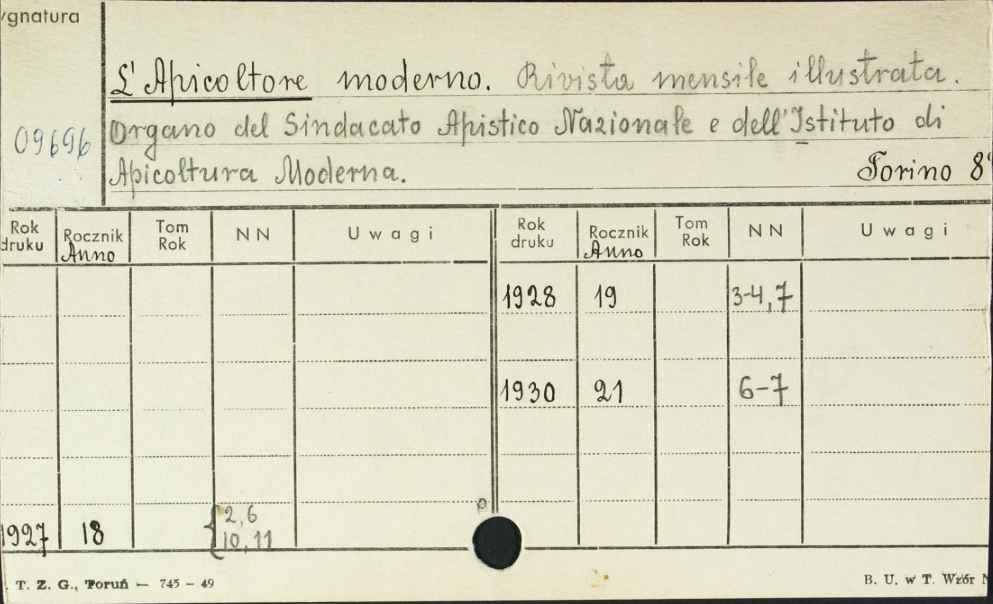 ygnatura
L'Apicoltore moderno. Rivista mensile illustrata.
09696
Organo del Sindacato Apistico Nazionale e dell'Istituto di
Apicoltura Moderna. Torino 8°
Rok druku Rocznik Anno Tom Rok NN Uwagi Rok druku Rocznik Anno Tom Rok NN Uwagi
1928 19 3-4, 7
1930 21 6-7
1927 18 2, 6
10, 11
T. Z. G., Toruń — 745 - 49 B. U. w T. Wzór N